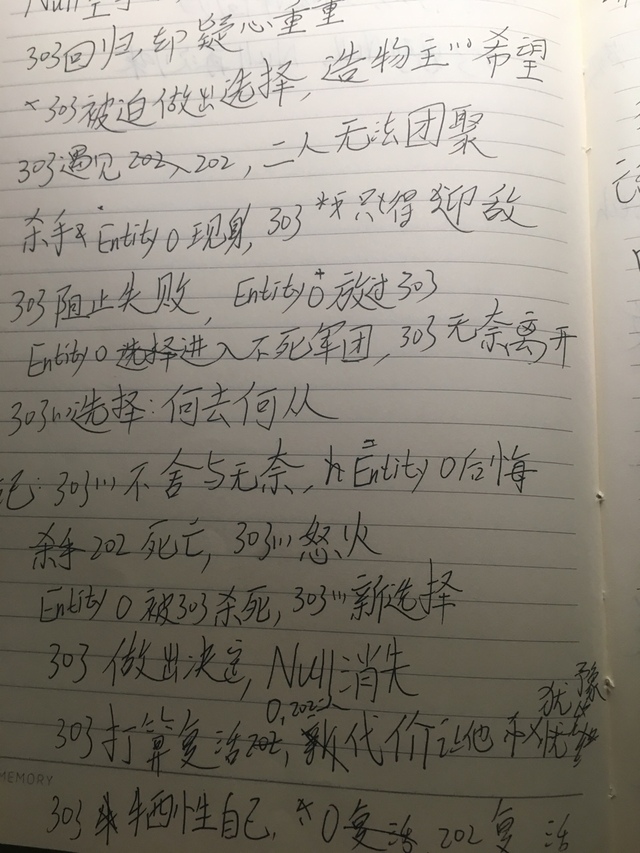 Null
303回归,却疑心重重
*303被迫做出选择,造物主的希望
303遇见202,202,二人无法团聚
杀手 Entity 0 现身,303 只得迎敌
303阻止失败,Entity 0 放过303
Entity 0 选择进入不死军团,303无奈离开
303的选择:何去何从
记:303的不舍与无奈, Entity 0后悔
杀手202死亡,303的怒火
Entity 0 被303杀死,303的新选择
303做出决定,Null消失
0,202
303打算复活202,代价让他犹豫
MEMORY
303牺牲自己,0复活 202复活